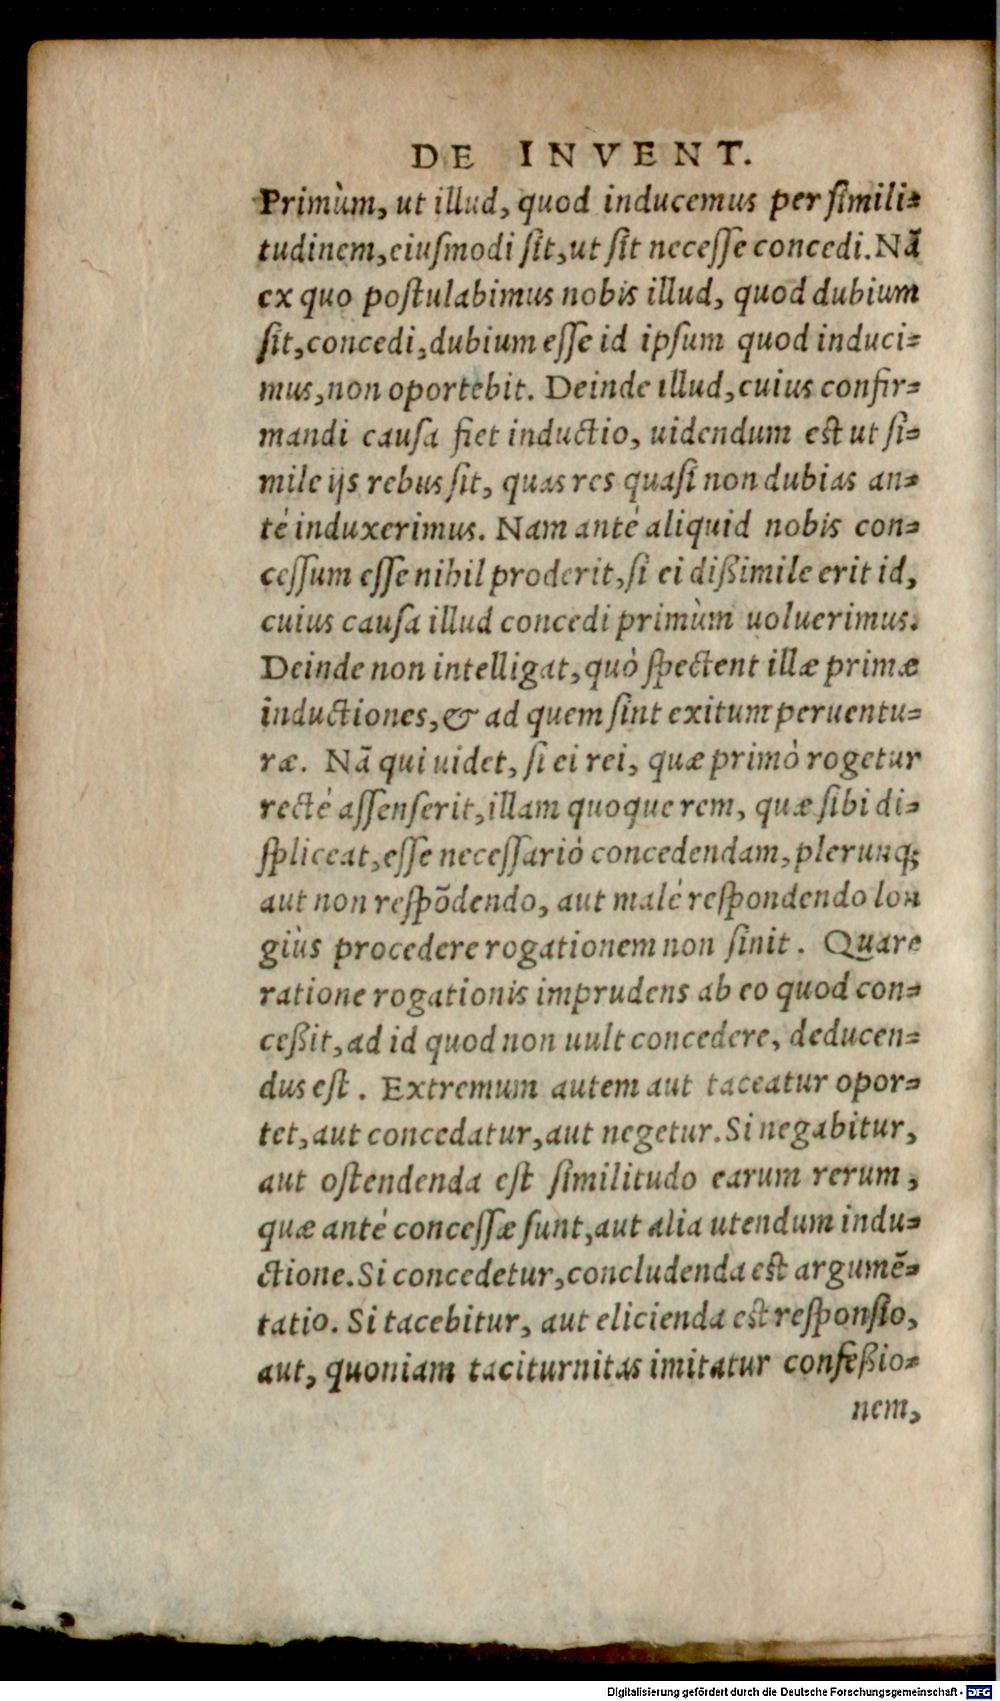 DE INVENT.
Primùm, ut illud, quod inducemus per ſimili=
tudinem, eiuſmodi ſit, ut ſit neceſſe concedi. Nā
ex quo poſtulabimus nobis illud, quod dubium
ſit, concedi, dubium eſſe id ipſum quod induci=
mus, non oportebit. Deinde illud, cuius confir=
mandi cauſa fiet inductio, uidendum eſt ut ſi=
mile ijs rebus ſit, quas res quaſi non dubias an=
té induxerimus. Nam anté aliquid nobis con=
ceſſum eſſe nihil proderit, ſi ei dißimile erit id,
cuius cauſa illud concedi primùm uoluerimus.
Deinde non intelligat, quò ſpectent illæ primæ
inductiones, & ad quem ſint exitum peruentu=
ræ. Nā qui uidet, ſi ei rei, quæ primò rogetur
recté aſſenſerit, illam quoque rem, quæ ſibi di=
ſpliceat, eſſe neceſſariò concedendam, plerunq;
aut non reſpōdendo, aut malé reſpondendo lon
giùs procedere rogationem non ſinit. Quare
ratione rogationis imprudens ab eo quod con=
ceßit, ad id quod non uult concedere, deducen=
dus eſt. Extremum autem aut taceatur opor=
tet, aut concedatur, aut negetur. Si negabitur,
aut oſtendenda eſt ſimilitudo earum rerum,
quæ anté conceſſæ ſunt, aut alia utendum indu=
ctione. Si concedetur, concludenda eſt argumē=
tatio. Si tacebitur, aut elicienda eſt reſponſio,
aut, quoniam taciturnitas imitatur confeßio=
nem,
Digitalisierung gefördert durch die Deutsche Forschungsgemeinschaft - DFG